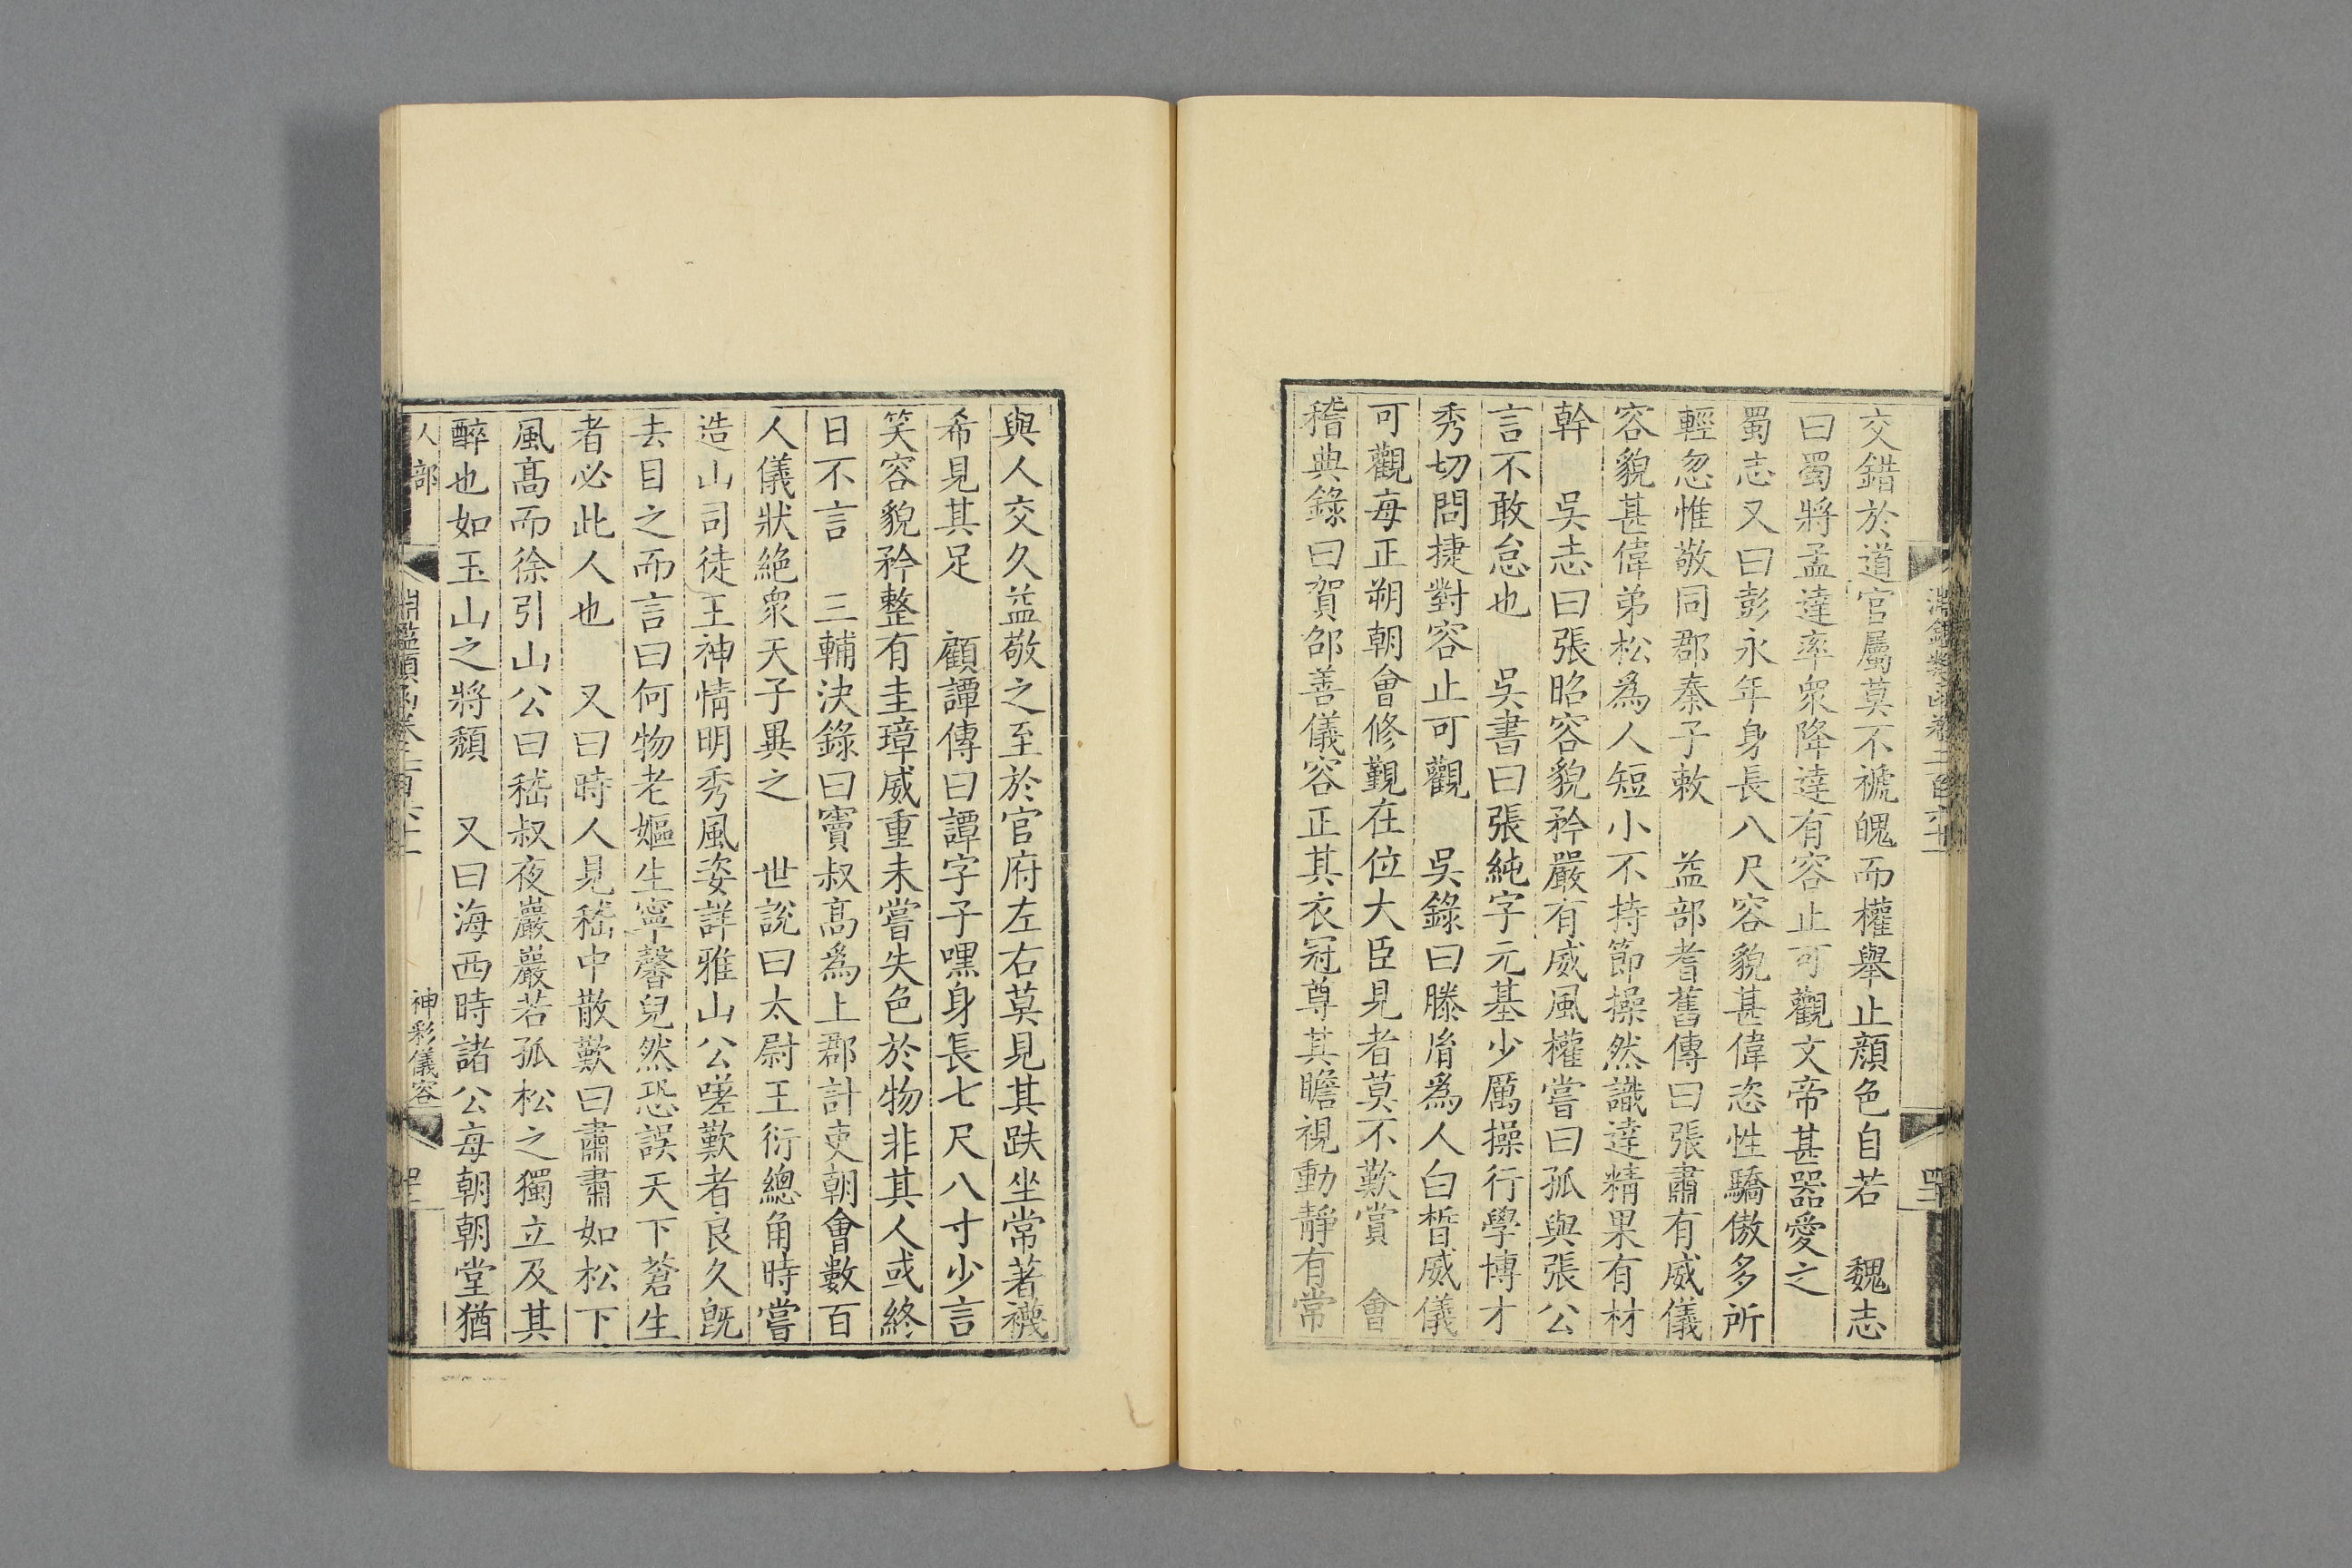 交錯於道官屬莫不褫魄而權舉止顔色自若　魏志
曰蜀將孟達率衆降達有容止可觀文帝甚器愛之
蜀志又曰彭永年身長八尺容貌甚偉恣性驕傲多所
輕忽惟敬同郡秦子敕　益部耆舊傳曰張肅有威儀
容貌甚偉弟松爲人短小不持節操然識達精果有材
幹　吳志曰張昭容貌矜嚴有威風權嘗曰孤與張公
言不敢怠也　吳書曰張純字元基少厲操行學博才
秀切問捷對容止可觀　吳錄曰滕胤爲人白皙威儀
可觀每正朔朝會修觐在位大臣見者莫不歎賞　會
稽典錄曰賀邵善儀容正其衣冠尊其瞻視動靜有常
與人交久益敬之至於官府左右莫見其跌坐常著襪
希見其足　顧譚傳曰譚字子嘿身長七尺八寸少言
笑容貌矜整有圭璋威重未嘗失色於物非其人或終
日不言　三輔決錄曰竇叔髙爲上郡計吏朝會數百
人儀狀絶衆天子異之　世說曰太尉王衍總角時嘗
造山司徒王神情明秀風姿詳雅山公嗟歎者良久旣
去目之而言曰何物老嫗生寧馨兒然恐誤天下蒼生
者必此人也　又曰時人見嵇中散歎曰肅肅如松下
風髙而徐引山公曰嵇叔夜巖巖若孤松之獨立及其
醉也如玉山之將頽　又曰海西時諸公每朝朝堂猶
人部　淵鑑類函卷二百六十　神彩儀容